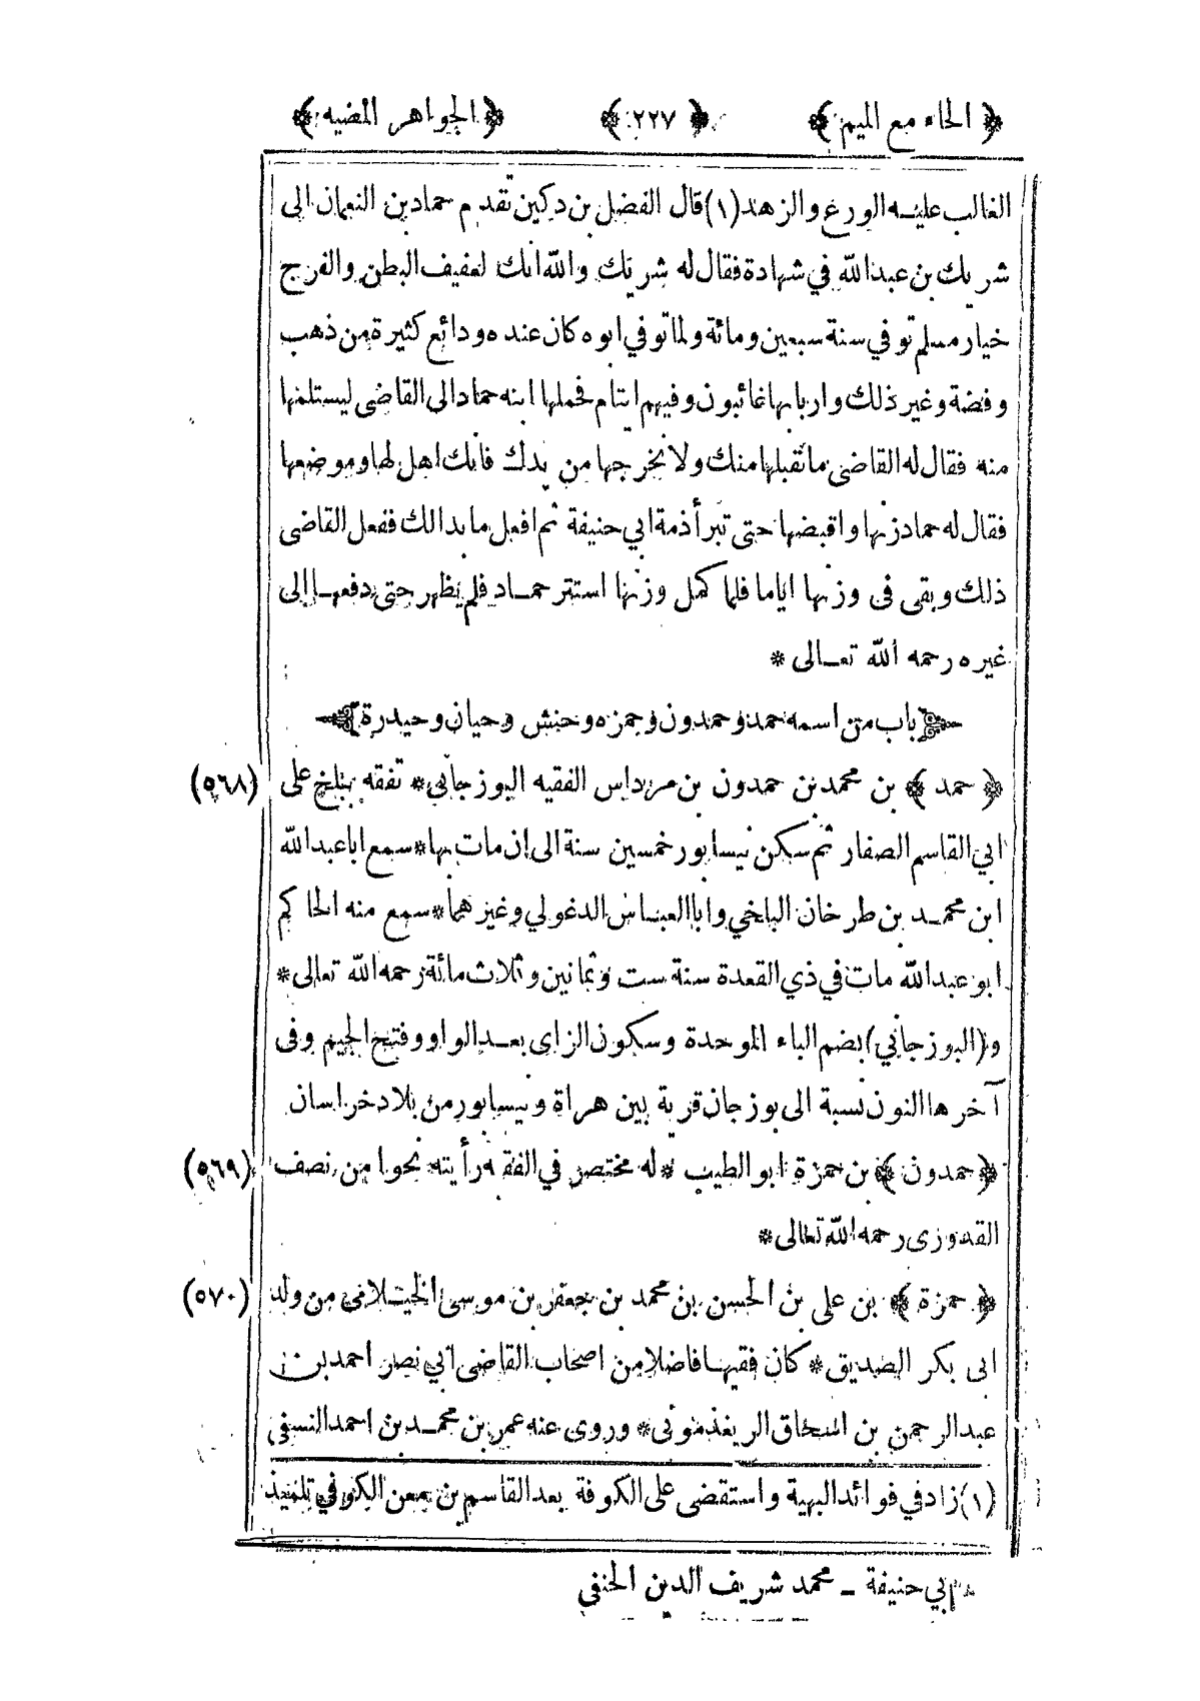 ﴿ الحاء مع الميم ﴾ ﴿ ٢٢٧ ﴾ ﴿ الجواهر المضيه ﴾
الغالب عليه الورع والزهد (١) قال الفضل بن دكين تقدم حماد بن النعمان الى
شريك بن عبد الله في شهادة فقال له شريك والله انك لعفيف البطن والفرج
خيار مسلم توفي سنة سبعين ومائة ولما توفي ابوه كان عنده ودائع كثيرة من ذهب
وفضة وغير ذلك واربابها غائبون وفيهم ايتام فحملها ابنه حماد الى القاضى ليستلمها
منه فقال له القاضى ما نقبلها منك ولا نخرجها من يدك فانك اهل لها وموضعها
فقال له حماد زنها واقبضها حتى تبرأ ذمة ابي حنيفة ثم افعل ما بدالك ففعل القاضى
ذلك وبقى فى وزنها اياما فلما كمل وزنها استتر حماد فلم يظهر حتى دفعها الى
غيره رحمه الله تعالى *
﴿ باب من اسمه حمد وحمدون وحمزه وحنش وحيان وحيدرة ﴾
﴿ حمد ﴾ بن محمد بن حمدون بن مرداس الفقيه البوزجانى * تفقه ببلخ على (٥٦٨)
ابي القاسم الصفار ثم سكن نيسابور خمسين سنة الى ان مات بها * سمع ابا عبد الله
ابن محمد بن طرخان البلخي وابا العباس الدغولي وغيرهما * سمع منه الحاكم
ابو عبد الله مات في ذي القعدة سنة ست وثمانين وثلاث مائة رحمه الله تعالى *
و (البوزجاني) بضم الباء الموحدة وسكون الزاى بعد الواو وفتح الجيم وفى
آخرها النون نسبة الى بوزجان قرية بين هراة ونيسابور من بلاد خراسان
﴿ حمدون ﴾ بن حمزة ابو الطيب * له مختصر في الفقه رأيته نحوا من نصف (٥٦٩)
القدورى رحمه الله تعالى *
﴿ حمزة ﴾ بن على بن الحسن بن محمد بن جعفر بن موسى من ولد (٥٧٠)
ابى بكر الصديق * كان فقيها فاضلا من اصحاب القاضى ابي نصر احمد بن
عبد الرحمن بن اسحاق الريغذمونى * وروى عنه عمر بن محمد بن احمد النسفى
(١) زاد في فوائد البهية واستقضى على الكوفة بعد القاسم بن معن الكوفي تلميذ
ابي حنيفة ــ محمد شريف الدين الحنفى